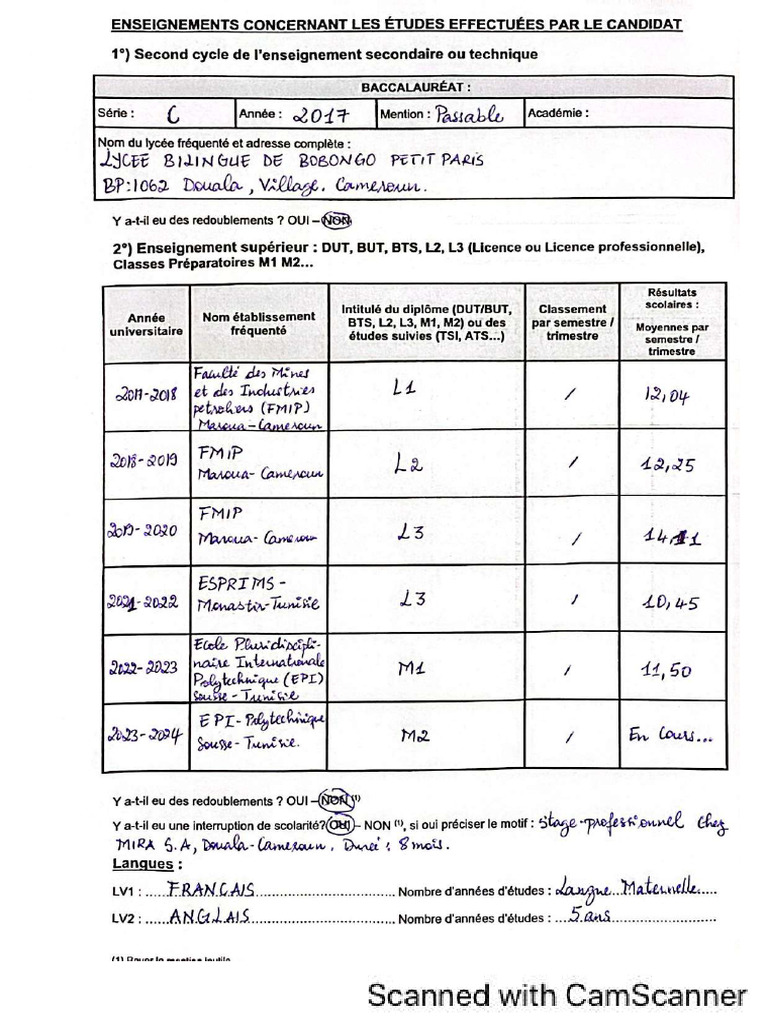 ENSEIGNEMENTS CONCERNANT LES ÉTUDES EFFECTUÉES PAR LE CANDIDAT
1°) Second cycle de l'enseignement secondaire ou technique
BACCALAURÉAT :
Série : C Année : 2017 Mention : Passable Académie :
Nom du lycée fréquenté et adresse complète :
LYCEE BILINGUE DE BOBONGO PETIT PARIS
BP:1062 Douala, Village. Cameroun.
Y a-t-il eu des redoublements ? OUI – NON
2°) Enseignement supérieur : DUT, BUT, BTS, L2, L3 (Licence ou Licence professionnelle),
Classes Préparatoires M1 M2...
Année universitaire
Nom établissement fréquenté
Intitulé du diplôme (DUT/BUT, BTS, L2, L3, M1, M2) ou des études suivies (TSI, ATS...)
Classement par semestre / trimestre
Résultats scolaires :
Moyennes par semestre / trimestre
2017-2018 Faculté des Mines et des Industries petrolières (FMIP) Maroua-Cameroun L1 / 12,04
2018-2019 FMIP Maroua-Cameroun L2 / 12,25
2019-2020 FMIP Maroua-Cameroun L3 / 14,11
2021-2022 ESPRIMS - Monastir-Tunisie L3 / 10,45
2022-2023 Ecole Pluridiscipli-naire Internationale Polytechnique (EPI) Sousse-Tunisie M1 / 11,50
2023-2024 EPI-Polytechnique Sousse-Tunisie. M2 / En Cours...
Y a-t-il eu des redoublements ? OUI – NON (1)
Y a-t-il eu une interruption de scolarité? OUI – NON (1), si oui préciser le motif : Stage-professionnel chez
MIRA S.A, Douala-Cameroun. Durée : 8 mois.
Langues :
LV1 : FRANCAIS Nombre d'années d'études : Langue Maternelle
LV2 : ANGLAIS Nombre d'années d'études : 5 ans
(1) Rayer la mention inutile
Scanned with CamScanner